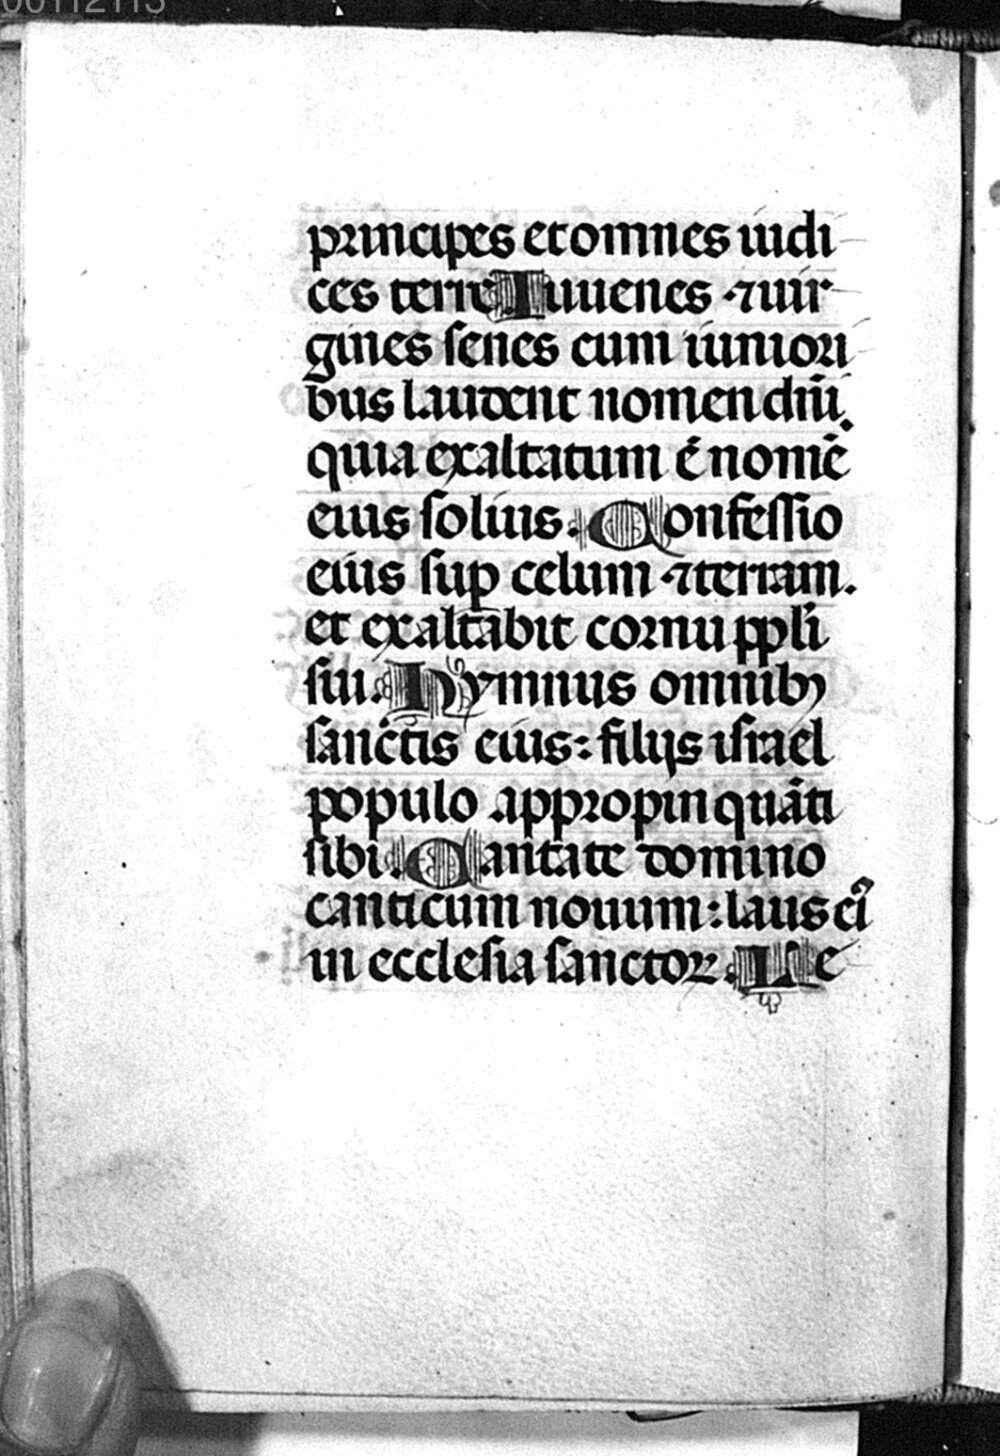 00112113
principes et omnes iudi
ces terre Iuuenes ⁊ uir
gines senes cum iuniori
bus laudent nomen dñi.
quia exaltatum ē nomē
eius solius. Confessio
eius sup celum ⁊ terram.
et exaltabit cornu ppli
sui. Hymnus omnibꝫ
sanctis eius: filijs israel
populo appropinquāti
sibi. Cantate domino
canticum nouum: laus eiꝰ
in ecclesia sanctoꝝ. Le